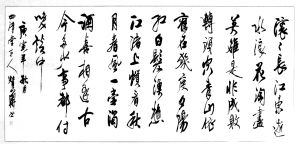 滚滚长江东逝
水浪花淘尽
英雄是非成败
转头空青山依
旧在几度夕阳
红白髮渔樵
江渚上惯看秋
月春风一壶浊
酒喜相逢古
今多少事都付
笑谈中
庚寅年秋月